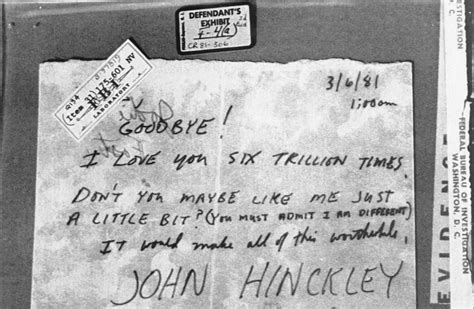 DEFENDANT'S
EXHIBIT
CR 81-306
FBI
LABORATORY
3/6/81
1:00am
GOODBYE!
I LOVE YOU SIX TRILLION TIMES.
DON'T YOU MAYBE LIKE ME JUST
A LITTLE BIT? (YOU MUST ADMIT I AM DIFFERENT)
IT would make all of this worthwhile.
JOHN HINCKLEY
EVIDENCE
FEDERAL BUREAU OF INVESTIGATION
WASHINGTON, D. C.